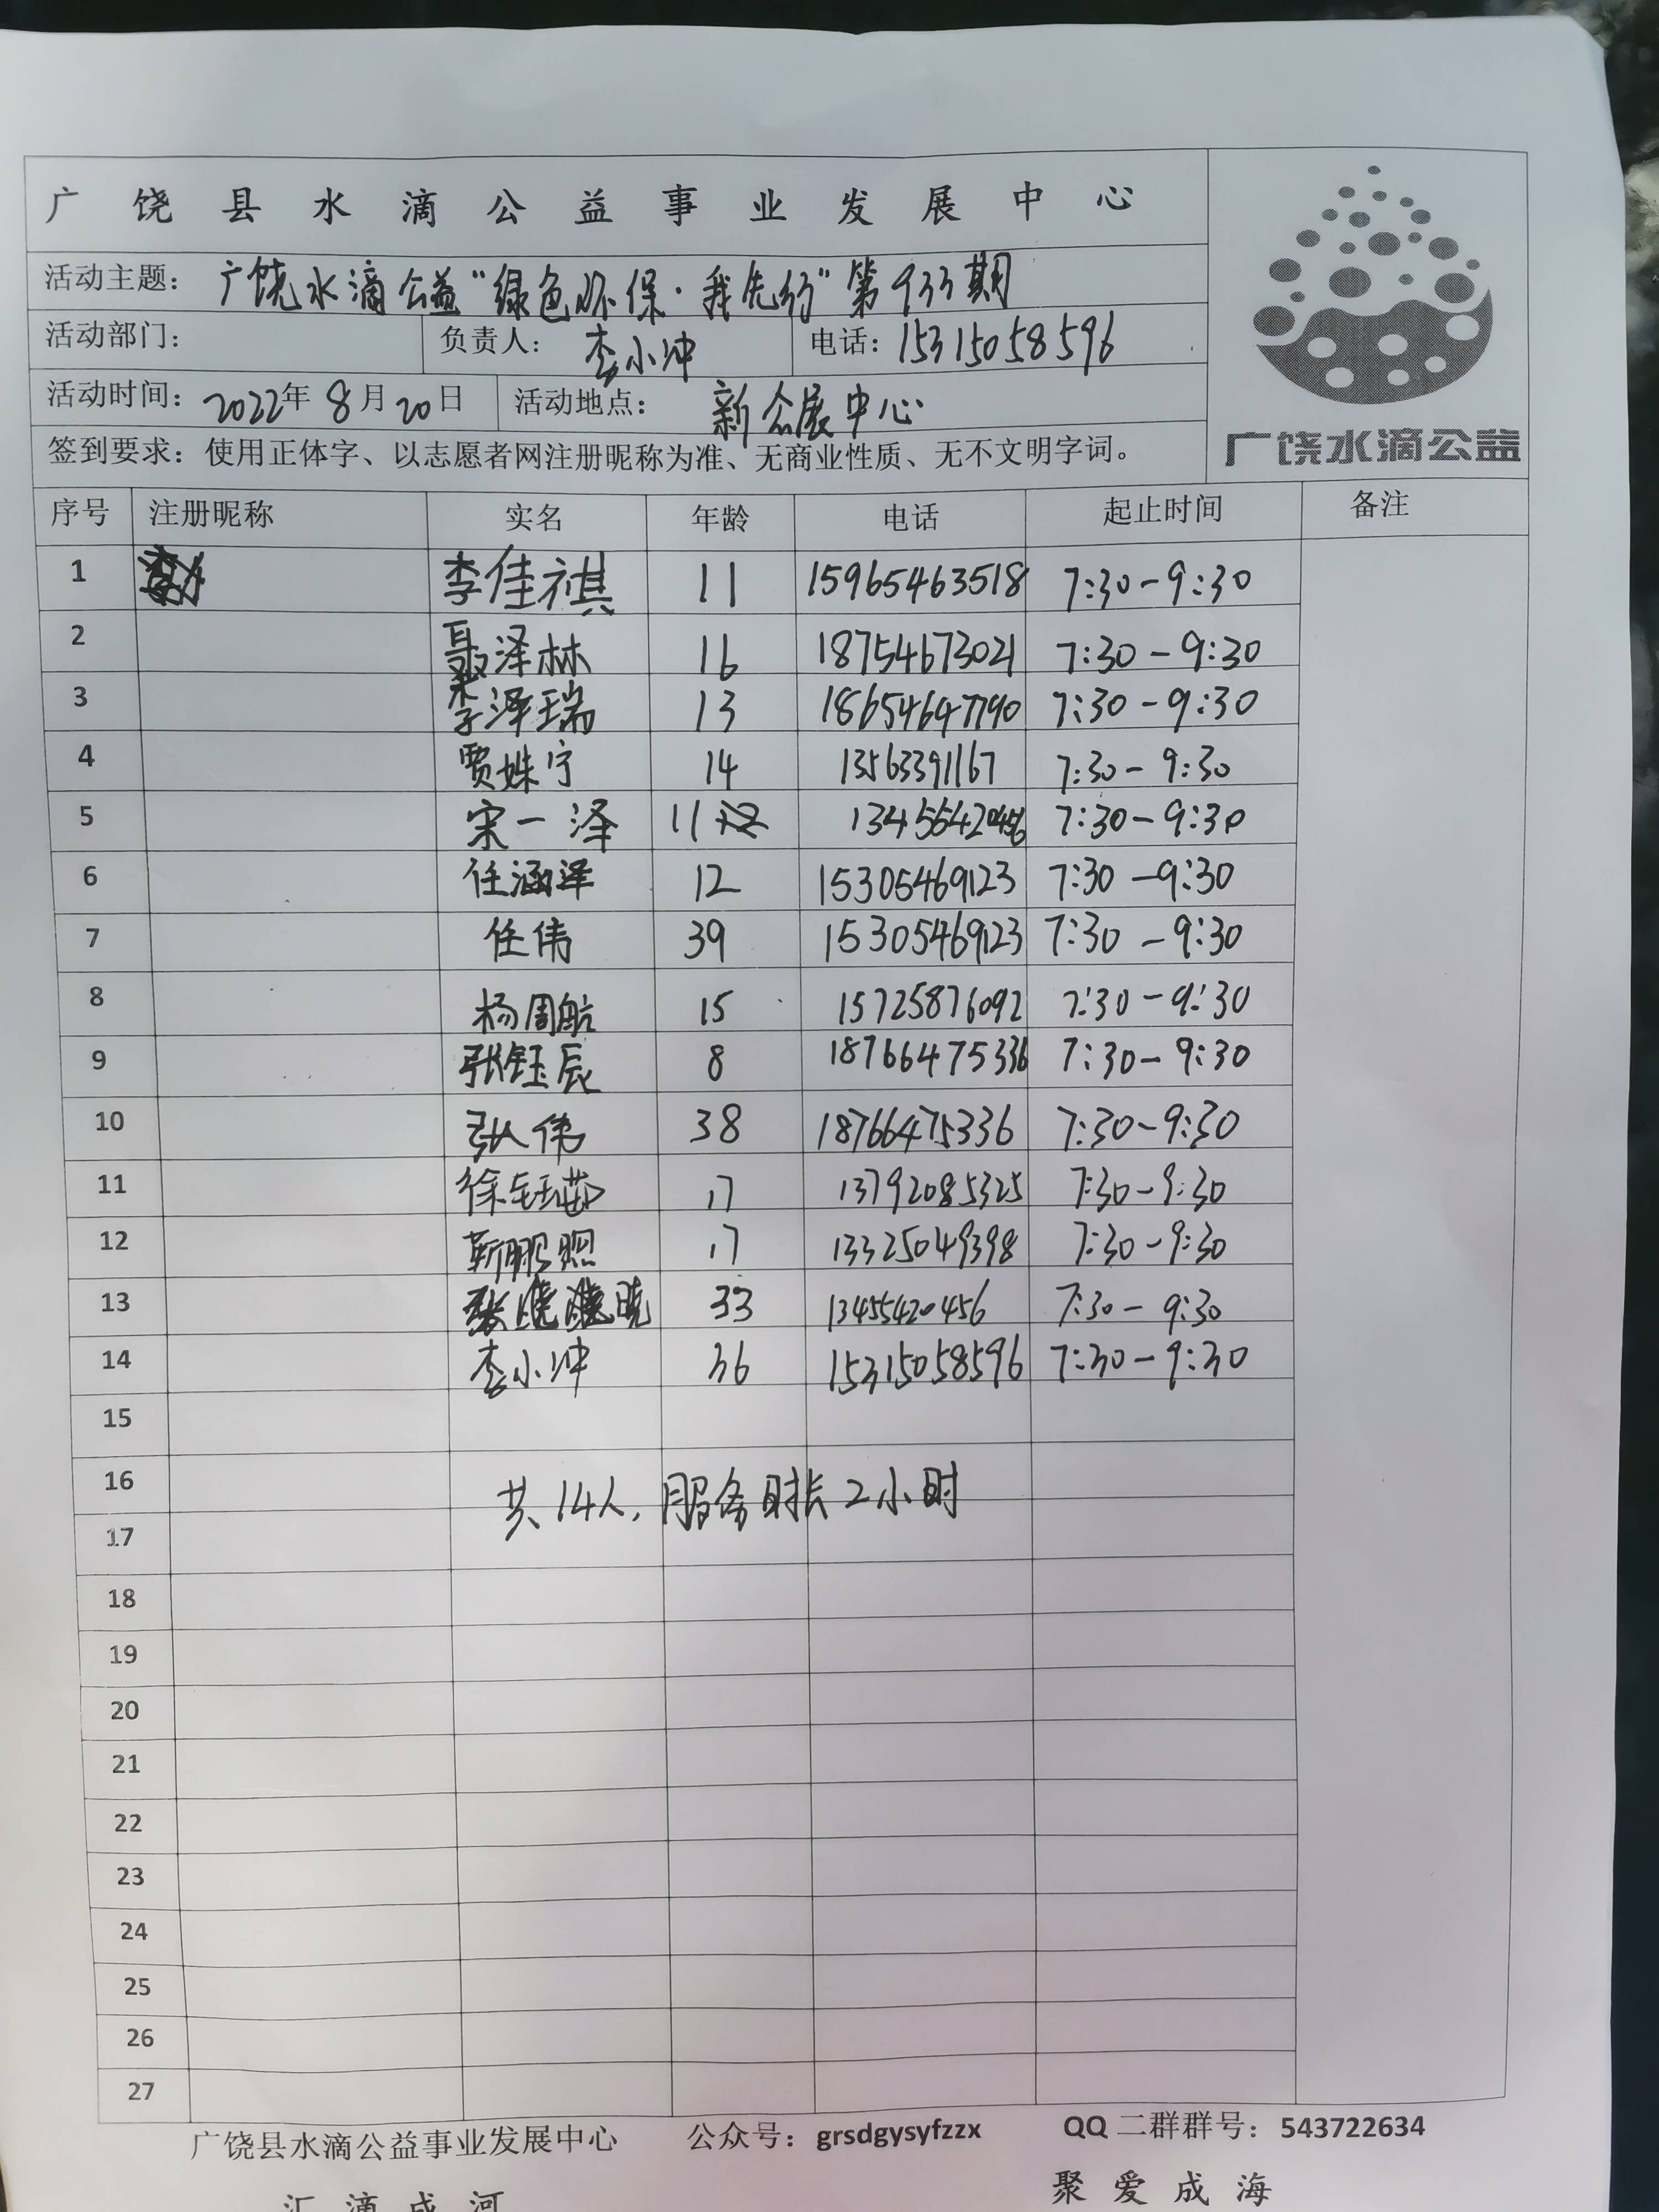 广饶县水滴公益事业发展中心
活动主题：广饶水滴公益“绿色环保·我先行”第933期
活动部门： 负责人：李小冲 电话：15315058596
活动时间：2022年8月20日 活动地点：新会展中心
广饶水滴公益
签到要求：使用正体字、以志愿者网注册昵称为准、无商业性质、无不文明字词。
序号 注册昵称 实名 年龄 电话 起止时间 备注
1 李佳祺 11 15965463518 7:30-9:30
2 聂泽林 16 18754673021 7:30-9:30
3 李泽瑞 13 18654647790 7:30-9:30
4 贾姝宁 14 13563391167 7:30-9:30
5 宋一泽 11 7:30-9:30
6 任涵泽 12 15305469123 7:30-9:30
7 任伟 39 15305469123 7:30-9:30
8 杨周航 15 15725876092 7:30-9:30
9 张钰辰 8 18766475336 7:30-9:30
10 张伟 38 18766475336 7:30-9:30
11 17 13792085325 7:30-9:30
12 靳鹏照 17 13325049398 7:30-9:30
13 33 13455420456 7:30-9:30
14 李小冲 36 15315058596 7:30-9:30
15
16
共14人，服务时长2小时
17
18
19
20
21
22
23
24
25
26
27
广饶县水滴公益事业发展中心 公众号：grsdgysyfzzx QQ二群群号：543722634
汇滴成河 聚爱成海